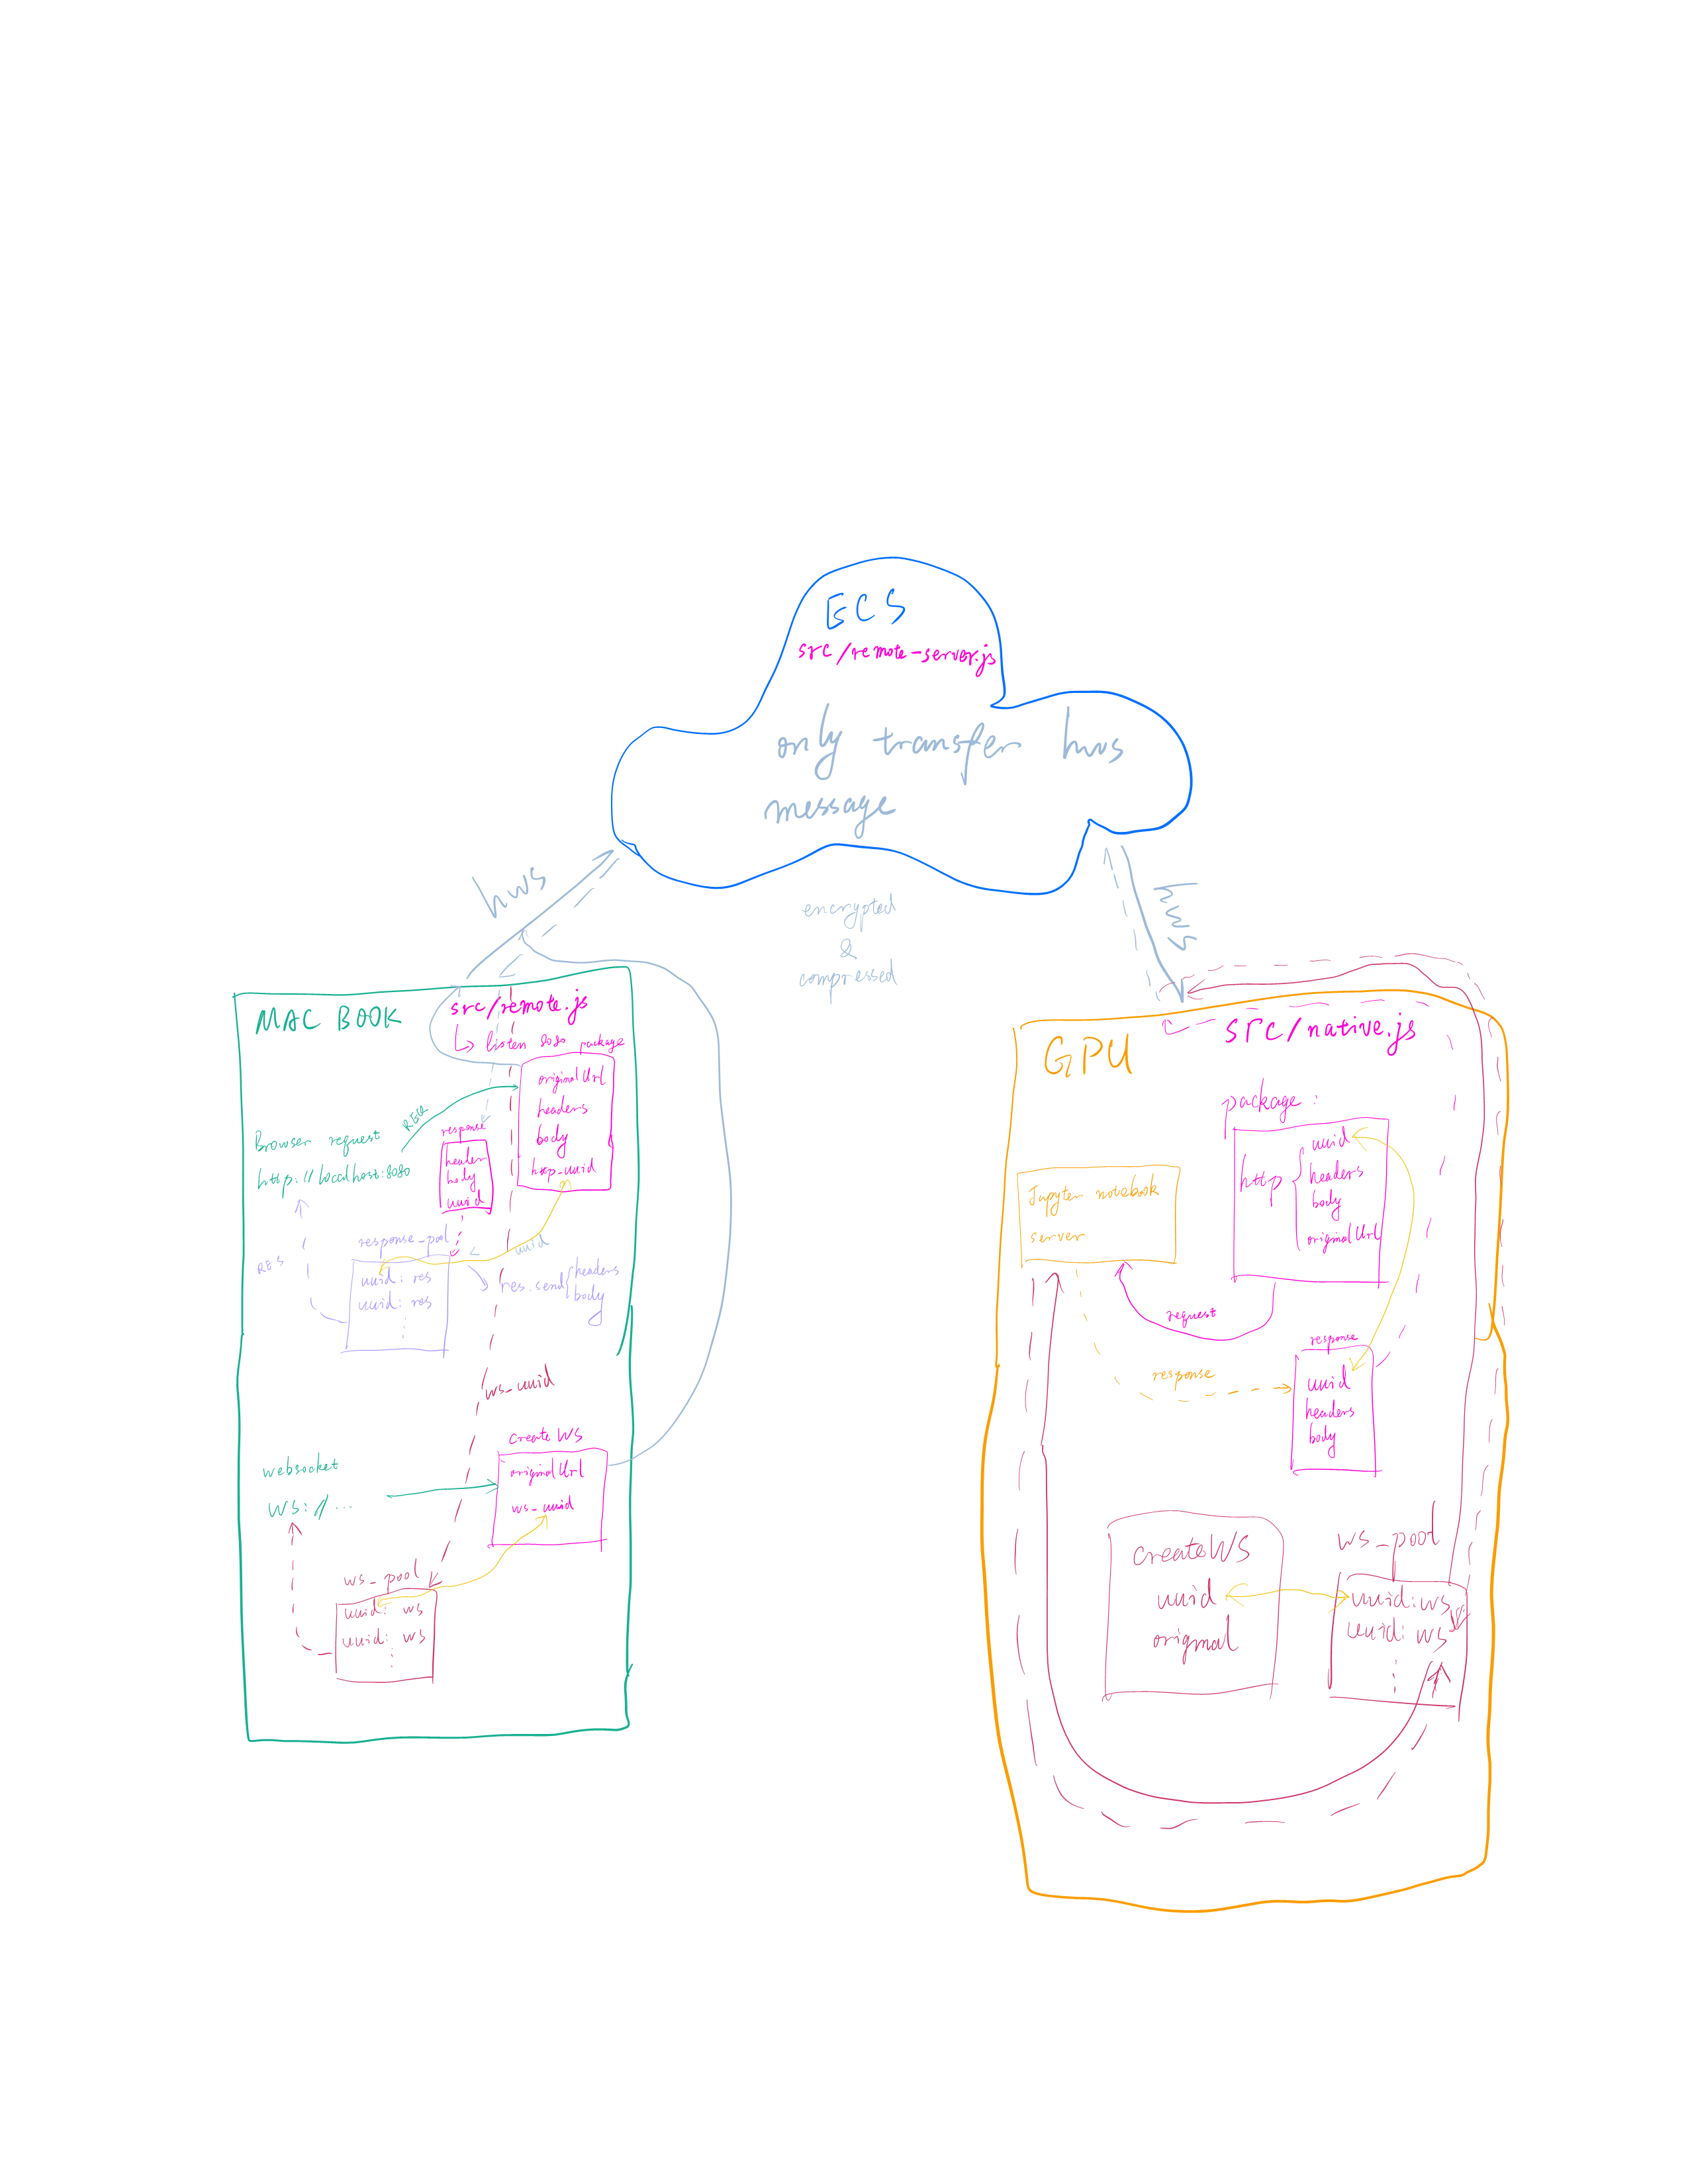 ECS
src/remote-server.js
only transfer hws
message
hws
hws
encrypted
&
compressed
MAC BOOK
src/remote.js
listen 8080 package
originalUrl
headers
body
http_uuid
REQ
Browser request
http://localhost:8080
response
header
body
uuid
response_pool
uuid
RES
uuid: res
uuid: res
res.send { headers
body
ws_uuid
create WS
originalUrl
ws_uuid
websocket
WS: // ...
ws_pool
uuid: ws
uuid: ws
GPU
src/native.js
package :
http { uuid
headers
body
originalUrl
Jupyter notebook
server
request
response
response
uuid
headers
body
createWS
uuid
original
ws_pool
uuid: ws
uuid: ws